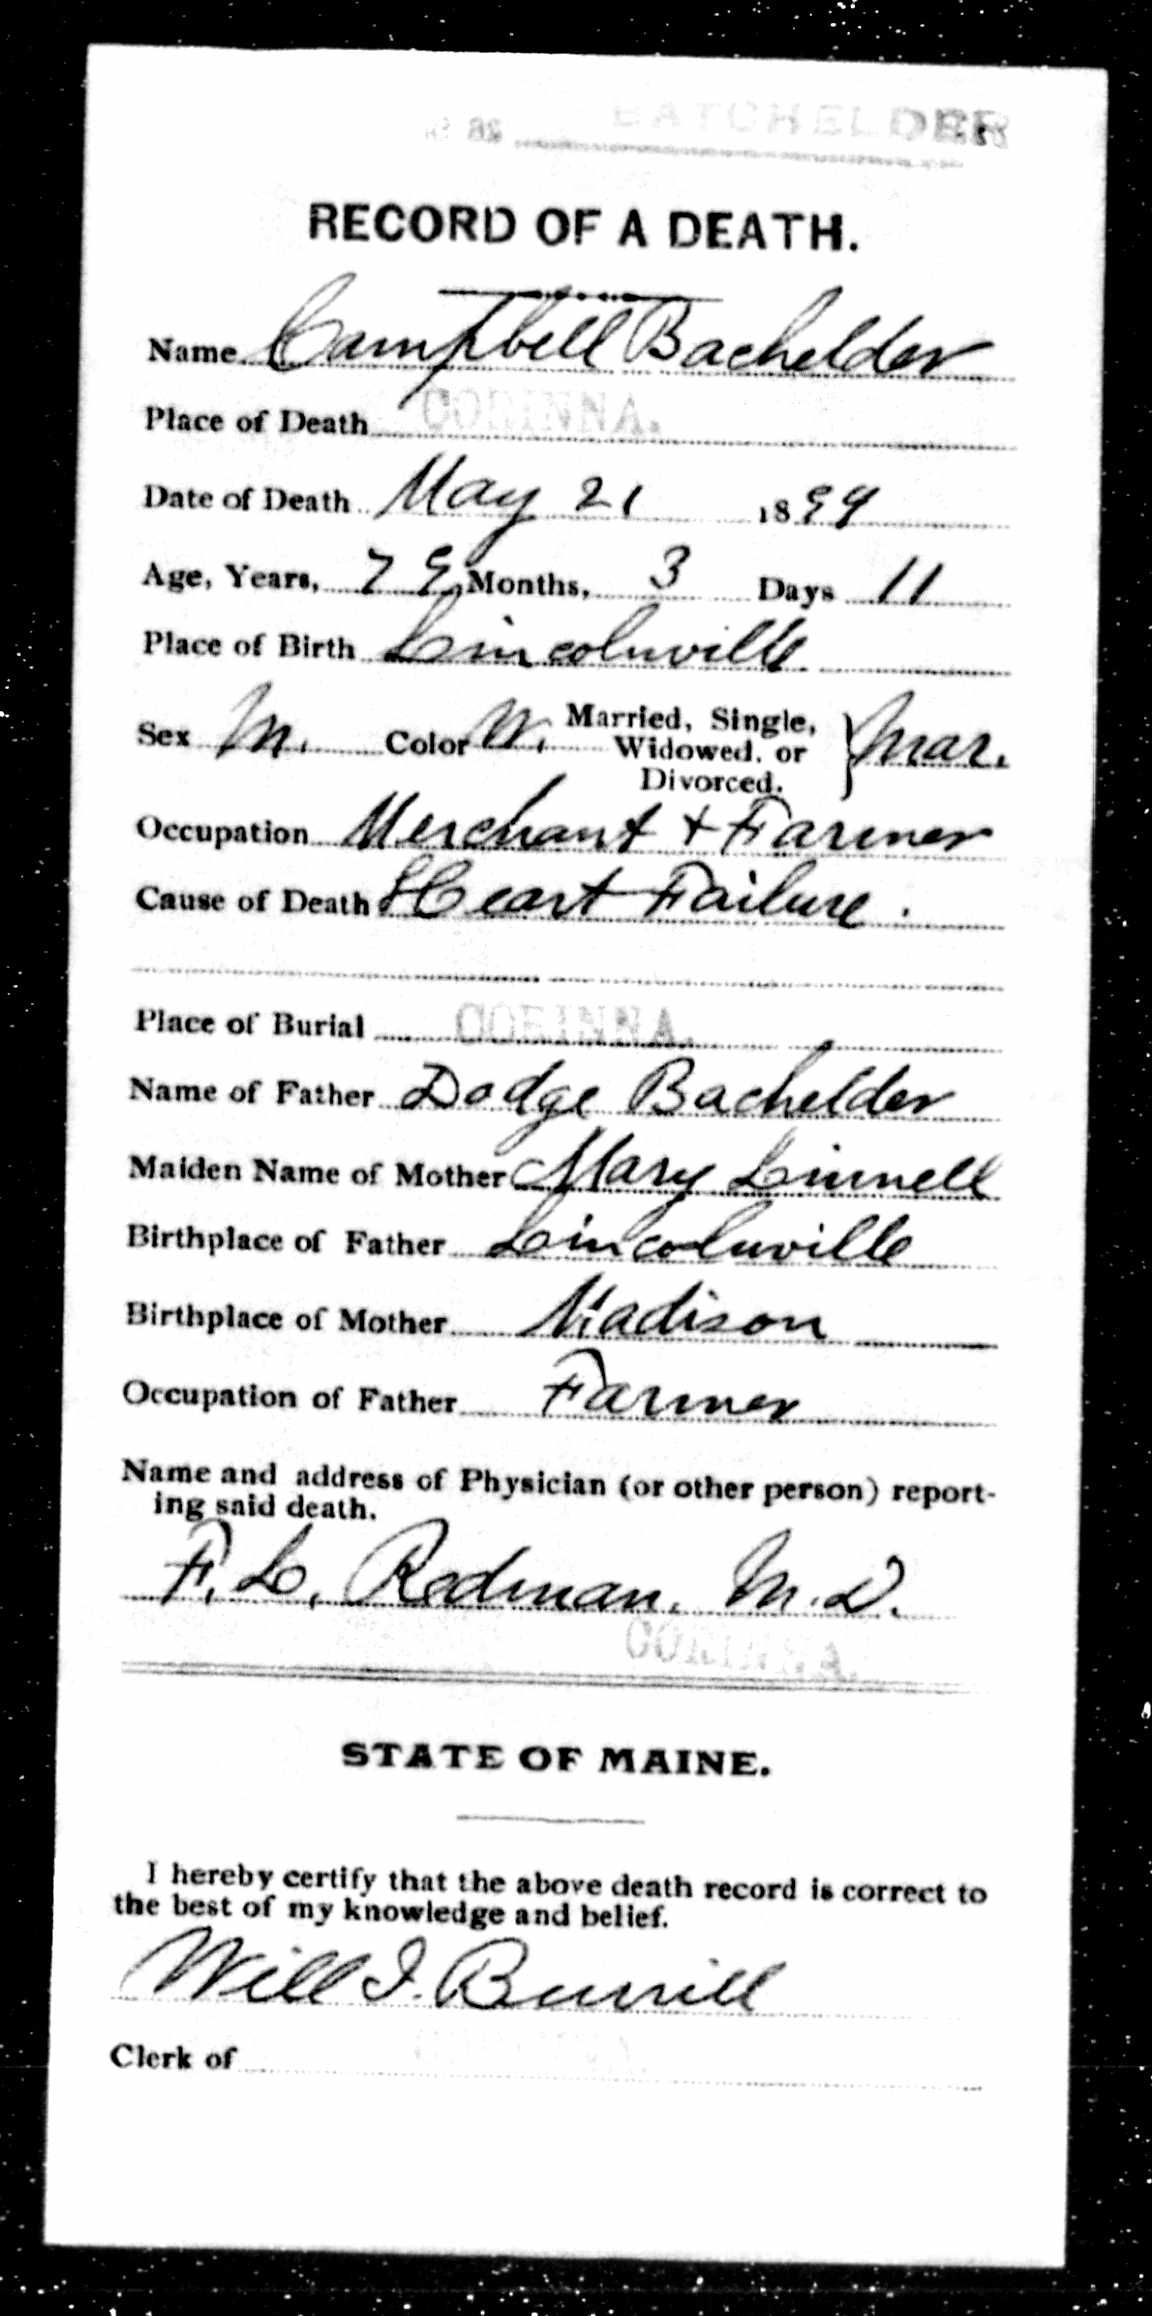 BATCHELDER
RECORD OF A DEATH.
Name Campbell Bachelder
Place of Death CORINNA.
Date of Death May 21 1899
Age, Years, 79 Months, 3 Days 11
Place of Birth Lincolnville
Sex M. Color W. Married, Single, Widowed, or Divorced. } Mar.
Occupation Merchant + Farmer
Cause of Death Heart Failure.
Place of Burial CORINNA.
Name of Father Dodge Bachelder
Maiden Name of Mother Mary Linnell
Birthplace of Father Lincolnville
Birthplace of Mother Madison
Occupation of Father Farmer
Name and address of Physician (or other person) report-
ing said death.
F. L. Redman, M.D.
CORINNA.
STATE OF MAINE.
I hereby certify that the above death record is correct to
the best of my knowledge and belief.
Will I. Burrill
Clerk of